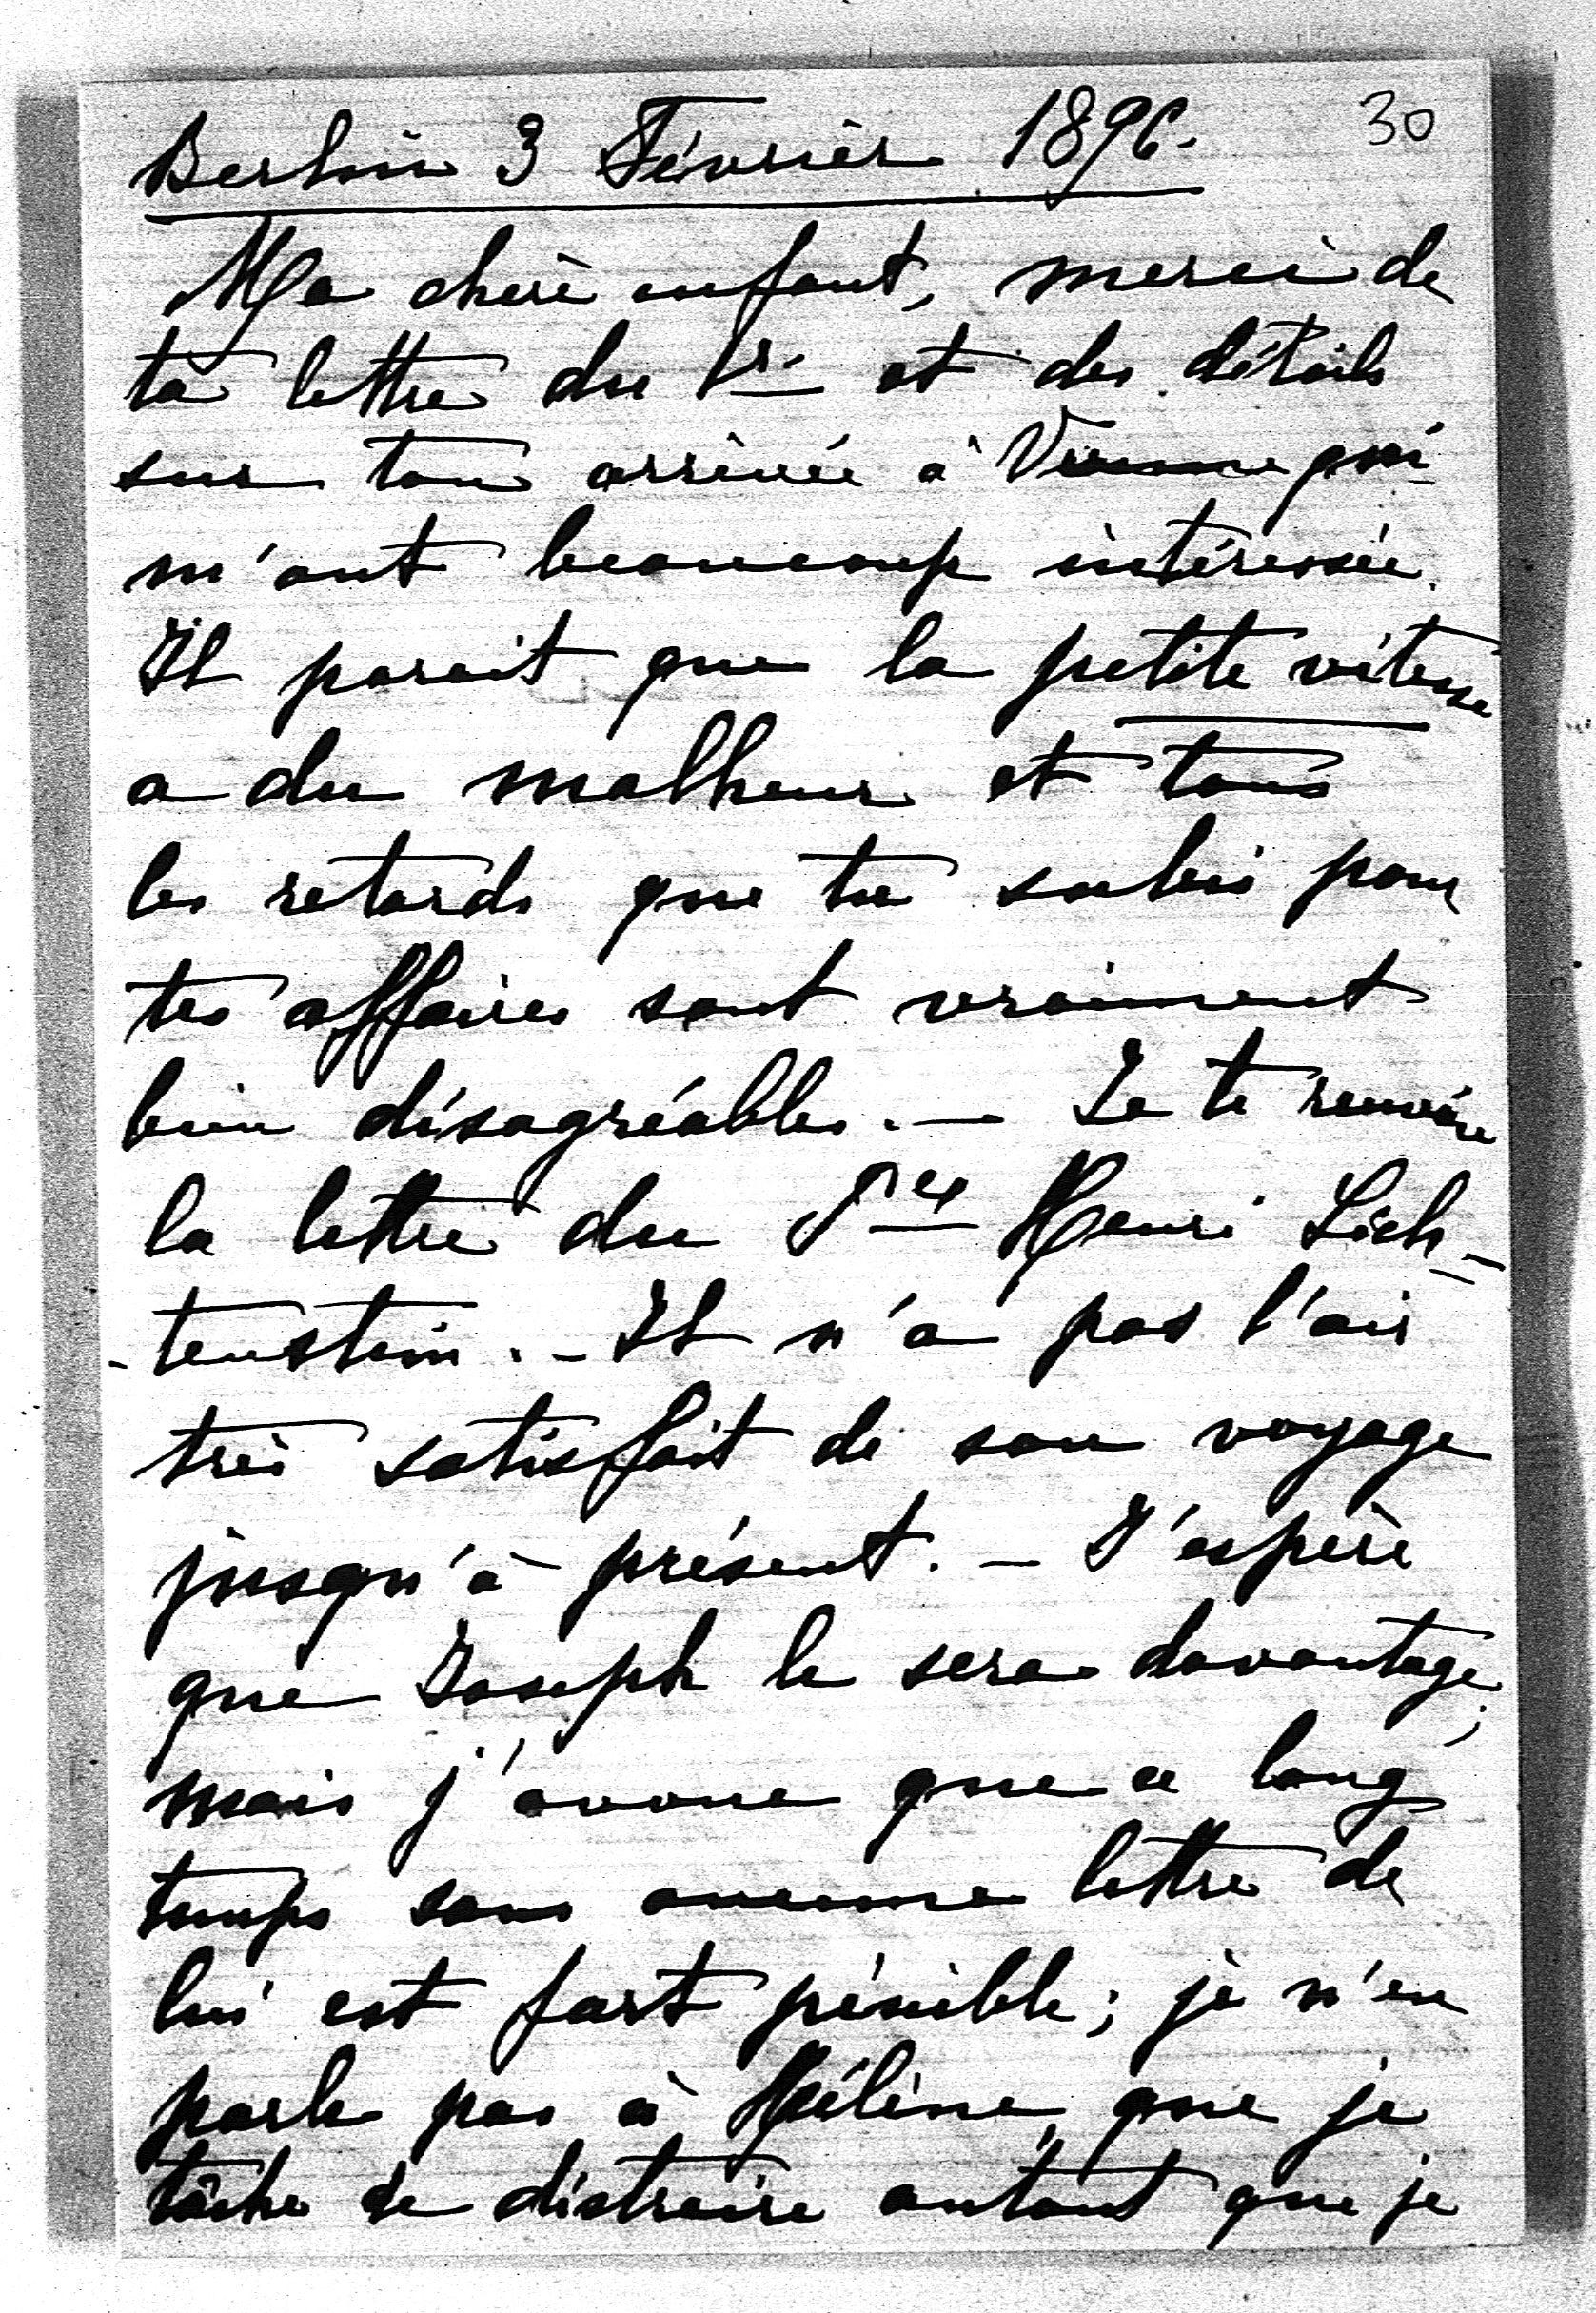 Berlin 3 Février 1896. 30
Ma chère enfant, merci de
ta lettre du 1r. et des détails
sur ton arrivée à Vienne qui
m'ont beaucoup intéressée.
Il parait que la petite vitesse
a du malheur et tous
les retards que tu subis pour
tes affaires sont vraiment
bien désagréables. — Je te renvoie
la lettre du Pce Henri Lich-
-tenstein. - Il n'a pas l'air
très satisfait de son voyage
jusqu'à présent. - J'espère
que Joseph le sera davantage;
mais j'avoue que ce long
temps sans aucune lettre de
lui est fort pénible; je n'en
parle pas à Hélène, que je
tâche de distraire autant que je